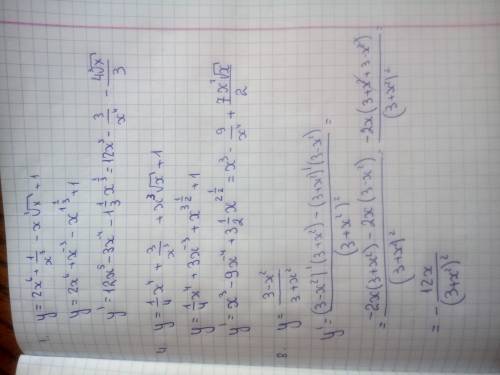 1. y = 2x⁶ + 1/x³ - x ∛x + 1
y = 2x⁶ + x⁻³ - x^(1 1/3) + 1
y' = 12x⁵ - 3x⁻⁴ - 1 1/3 x^(1/3) = 12x⁵ - 3/x⁴ - 4∛x/3
4. y = 1/4 x⁴ + 3/x³ + x³√x + 1
y = 1/4 x⁴ + 3x⁻³ + x^(3 1/2) + 1
y' = x³ - 9x⁻⁴ + 3 1/2 x^(2 1/2) = x³ - 9/x⁴ + 7x²√x/2
8. y = (3-x²)/(3+x²)
y' = ((3-x²)'(3+x²) - (3+x²)'(3-x²))/(3+x²)² =
= (-2x(3+x²) - 2x(3-x²))/(3+x²)² = -2x(3+x²+3-x²)/(3+x²)² =
= - 12x/(3+x²)²